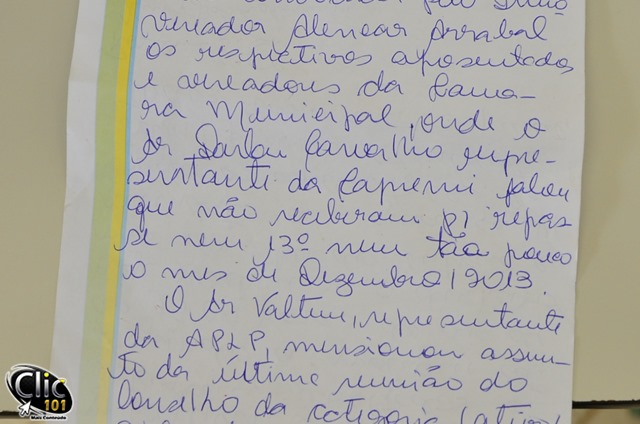 vereador Alencar Arrabal
os respectivos aposentados
e vereadores da Cama-
ra Municipal, onde o
Sr Carvalho repre-
sentante da Capremi falou
que não receberam p/ repas
se nem 13º nem tão pouco
o mes de Dezembro/2013.
O Sr Valter, representante
da APLP, mensionou assun-
to da última reunião do
Conselho da categoria (ativo/
Clic
101
Mais Conteúdo